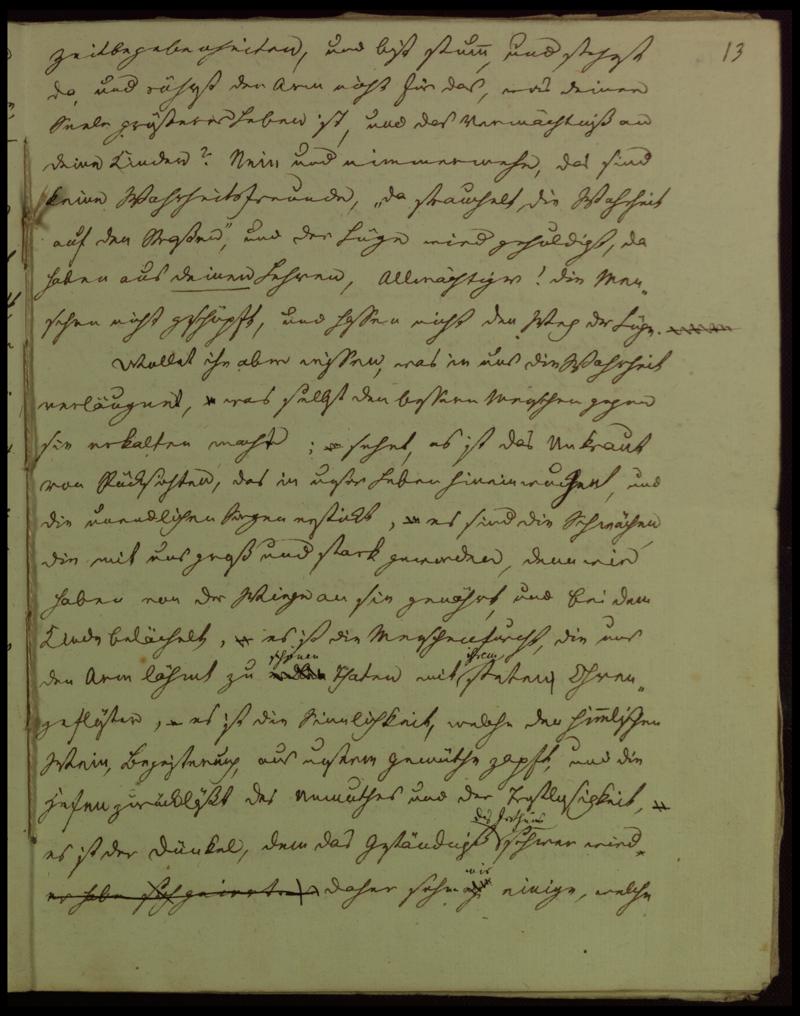 13
Zeitbegebenheiten, und bist stum̅, und stehest
da, und rührst den Arm nicht für das, was deiner
Seele größeres Leben ist, und das Vermächtniß an
deine Kinder? Nein und nimmermehr, das sind
keine Wahrheitsfreunde, „da strauchelt die Wahrheit
auf den Straßen", und der Lüge wird gehuldigt, da
haben aus deinen Lehren, Allmächtiger! die Men„
schen nicht geschöpft, und hassen nicht den Weg der Lüge.
Wollet ihr aber wissen, was in uns die Wahrheit
verläugnet, was selbst den bessern Menschen gegen
sie erkalten macht; sehet, es ist das Unkraut
von Rücksichten, das in unser Leben hineinwuchert, und
die unendlichen Sorgen erstickt, es sind die Schwächen,
die mit uns groß und stark geworden, denn wir
haben von der Wiege an sie genährt, und bei dem
Kinde belächelt, es ist die Menschenfurcht, die uns
den Arm lähmt zu schönen Thaten mit ihrem steten Ohren„
geflüster, es ist die Sinnlichkeit, welche den him̅lischen
Wein, Begeisterung, aus unserm Gemüthe zapft, und die
Hefen zurückläßt des Unmuthes und der Trostlosigkeit,
es ist der Dünkel, dem das Geständniß des Irrthums schwer wird.
er habe sich geirrt daher sehen wir einige, welche